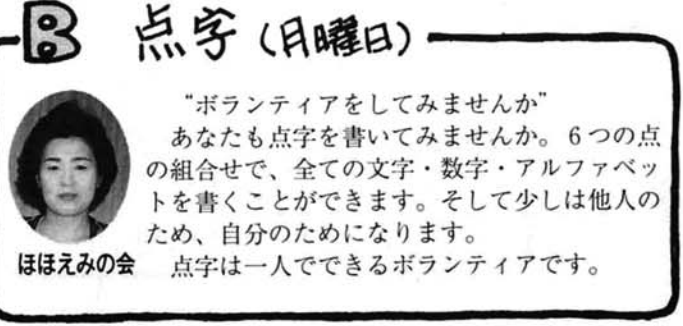 B 点字（月曜日）
“ボランティアをしてみませんか”
あなたも点字を書いてみませんか。6つの点
の組合せで、全ての文字・数字・アルファベッ
トを書くことができます。そして少しは他人の
ため、自分のためになります。
点字は一人でできるボランティアです。
ほほえみの会